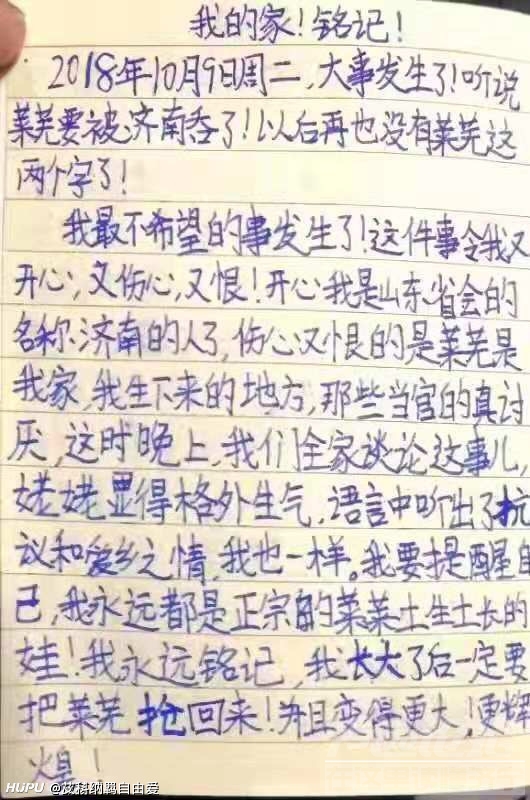 我的家！铭记！
2018年10月9日周二，大事发生了！听说
莱芜要被济南吞了！以后再也没有莱芜这
两个字了！
我最不希望的事发生了！这件事令我又
开心，又伤心，又恨！开心我是山东省会的
名称济南的人了，伤心又恨的是莱芜是
我家，我生下来的地方，那些当官的真讨
厌，这时晚上，我们全家谈论这事儿，
姥姥显得格外生气，语言中听出了抗
议和爱乡之情，我也一样。我要提醒自
己，我永远都是正宗的莱芜土生土长的
娃！我永远铭记，我长大了后一定要
把莱芜抢回来！并且变得更大！更辉
煌！
HUPU @艾科纳羁自由爱